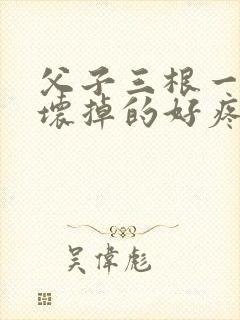 父子三根一
壞掉的好疼
吴偉彪